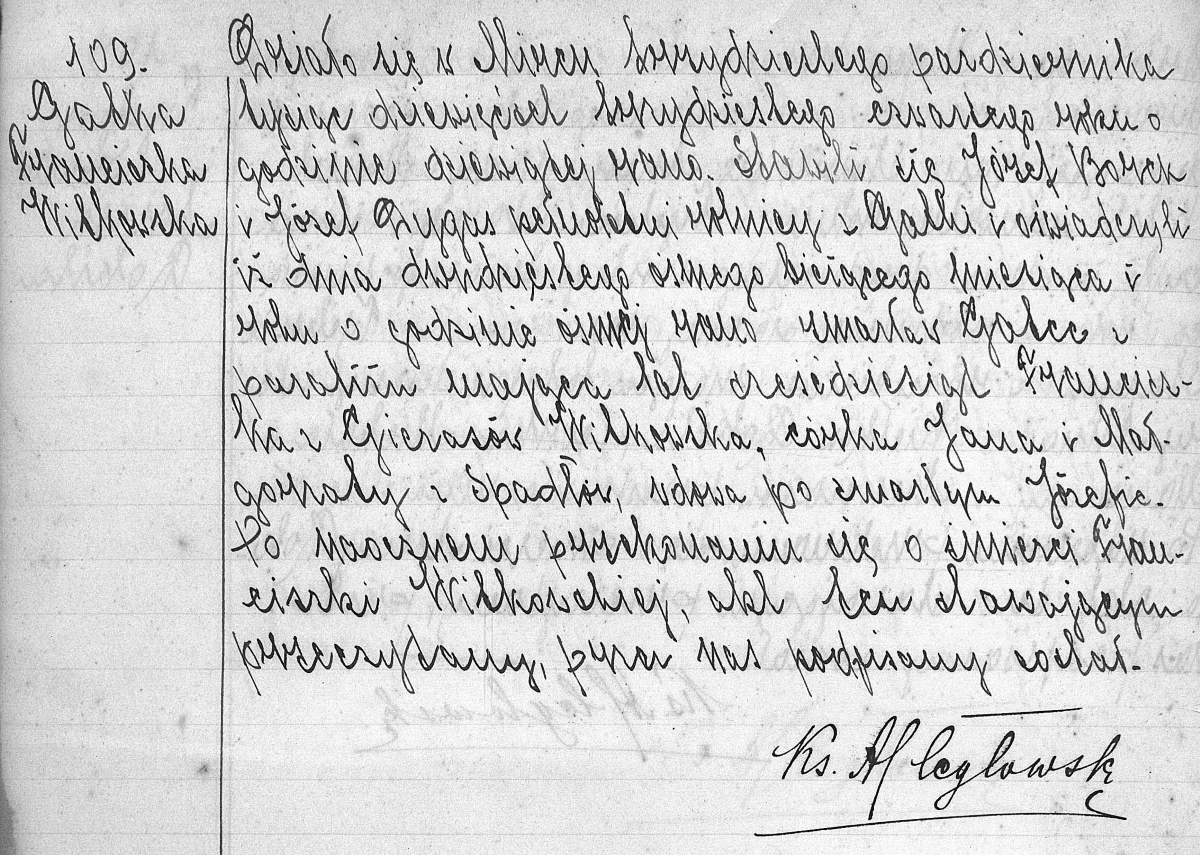 109.
Gałka
Franciszka
Wilkowska
Działo się w Mircu trzydziestego października
tysiąc dziewięćset trzydziestego czwartego roku o
godzinie dziewiątej rano. Stawili się Józef Borek
i Józef Dygas pełnoletni rolnicy z Gałki i oświadczyli
iż dnia dwudziestego ósmego bieżącego miesiąca i
roku o godzinie ósmej rano zmarła w Gałce
parafiin mająca lat sześćdziesiąt Francisz-
ka z Gierasów Wilkowska, córka Jana i Mał-
gorzaty z Spadłów, wdowa po zmarłym Józefie.
Po naocznem przekonaniu się o śmierci Fran-
ciszki Wilkowskiej, akt ten stawającym
przeczytany, przez nas podpisany został.
Ks.